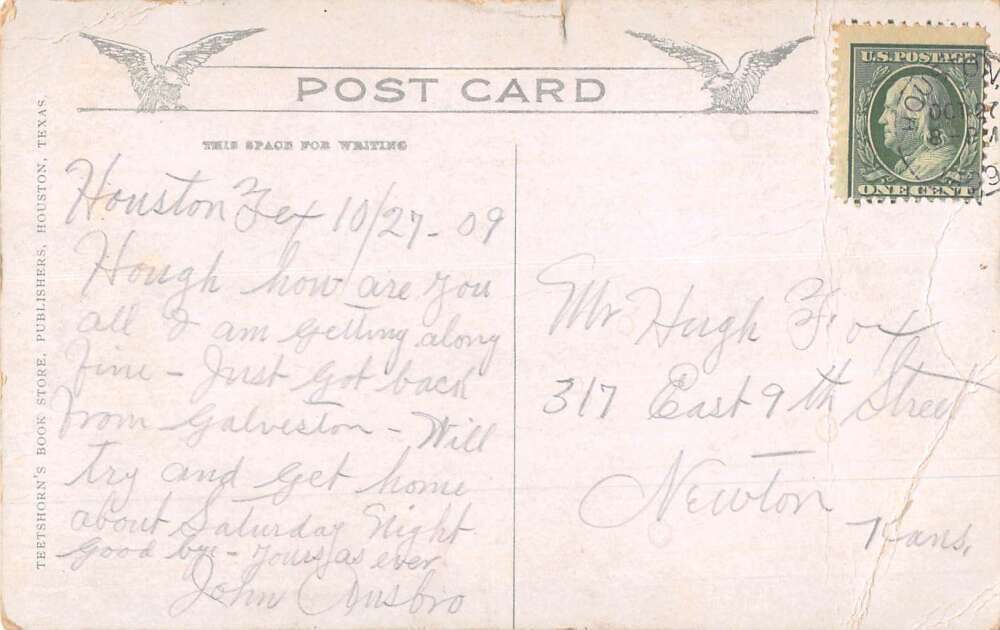 POST CARD
THIS SPACE FOR WRITING
U.S. POSTAGE
ONE CENT
TEETSHORN'S BOOK STORE, PUBLISHERS, HOUSTON, TEXAS.
Houston Tex 10/27-09
Hough how are you
all I am getting along
fine - Just got back
from Galveston - Will
try and get home
about Saturday Night
Good bye - yours as ever
John Ansbro
Mr Hugh Fox
317 East 9th Street
Newton
Kans.